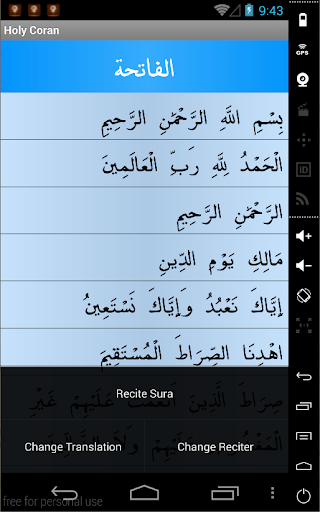 9:43
Holy Coran
الفاتحة
بِسْمِ اللَّهِ الرَّحْمَٰنِ الرَّحِيمِ
الْحَمْدُ لِلَّهِ رَبِّ الْعَالَمِينَ
الرَّحْمَٰنِ الرَّحِيمِ
مَالِكِ يَوْمِ الدِّينِ
إِيَّاكَ نَعْبُدُ وَإِيَّاكَ نَسْتَعِينُ
اهْدِنَا الصِّرَاطَ الْمُسْتَقِيمَ
صِرَاطَ الَّذِينَ أَنْعَمْتَ عَلَيْهِمْ غَيْرِ
Recite Sura
عَلَيْهِمْ وَلَا
Change Translation
Change Reciter
free for personal use
GPS
ID